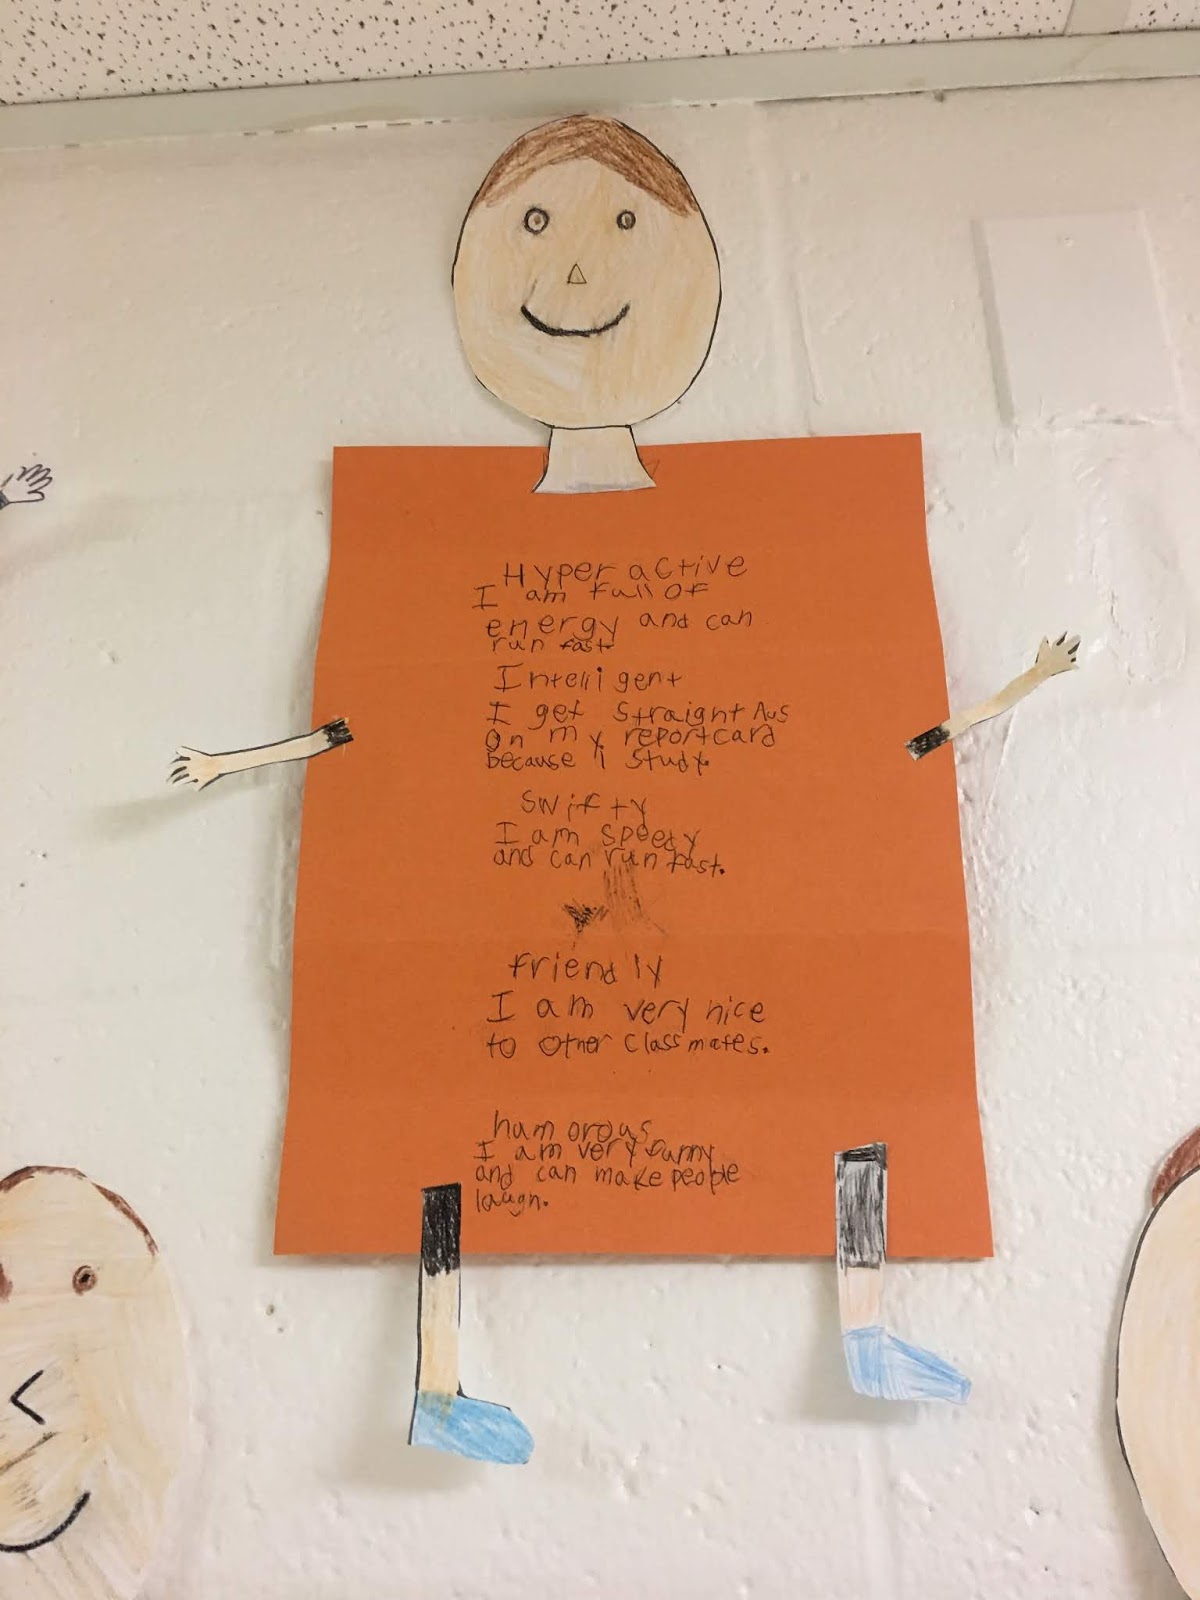 Hyper active
I am full of
energy and can
run fast.
Intelligent
I get straight Aus
on my reportcard
because I study.
swifty
I am speedy
and can run fast.
friendly
I am very nice
to other classmates.
humorous
I am very funny
and can make people
laugh.